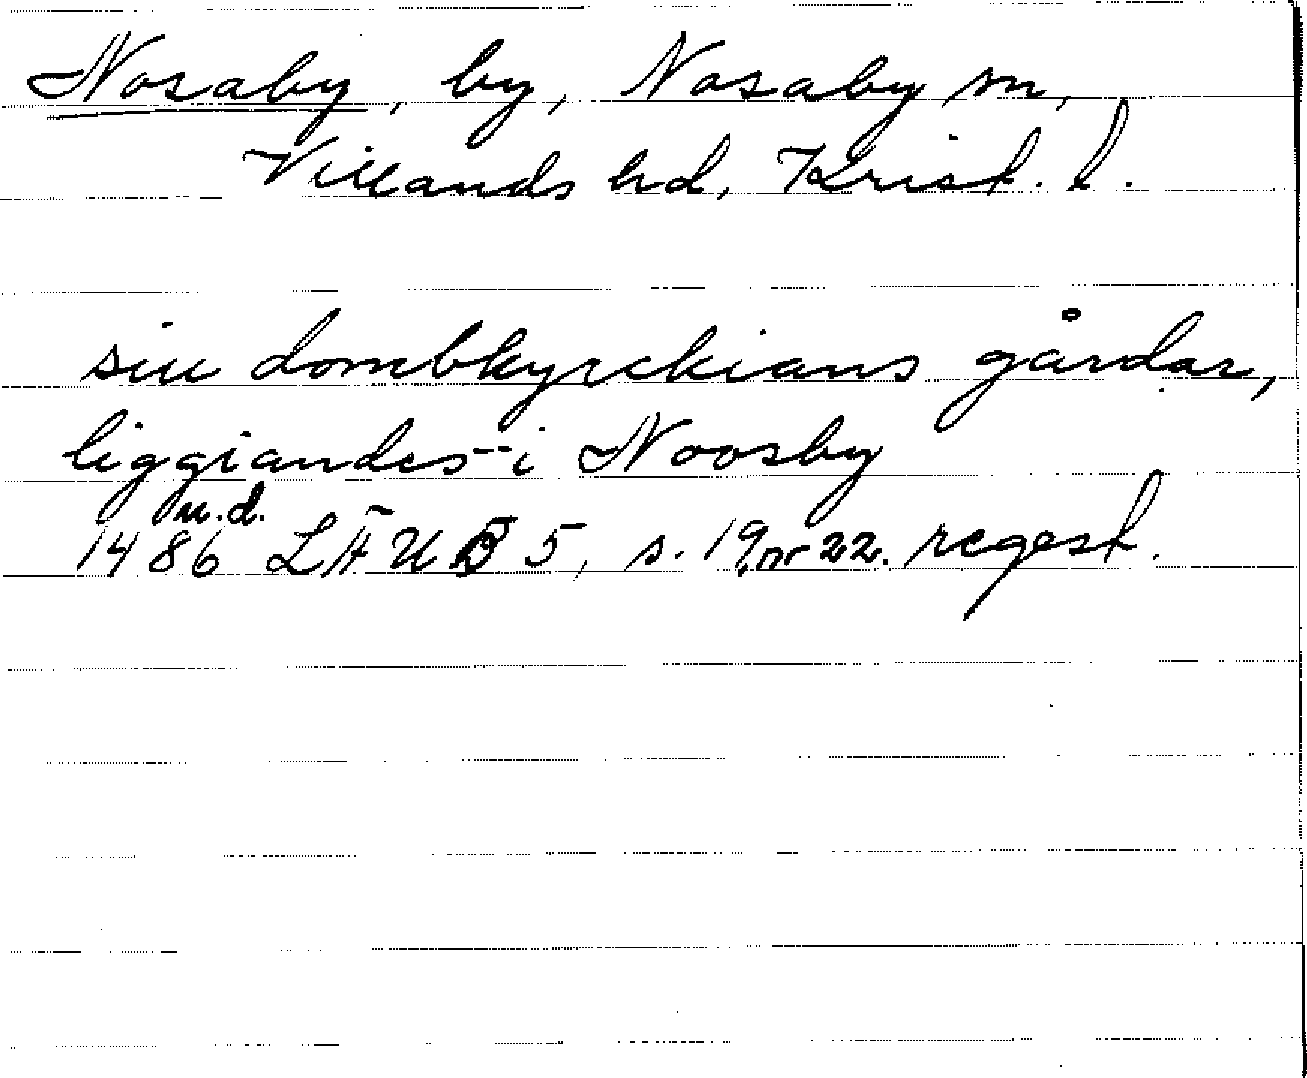 Nosaby, by, Nosaby sn,
Villands hd, Krist. l.
siu dombkyrckians gårdar,
liggiandes i Noosby
u.d.
1486 LÄUB 5, s. 19, nr 22. regest.